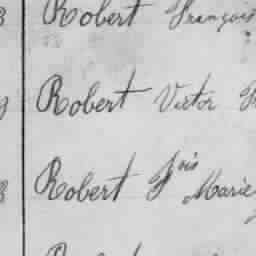 Robert François
Robert Victor
Robert Fois Marie